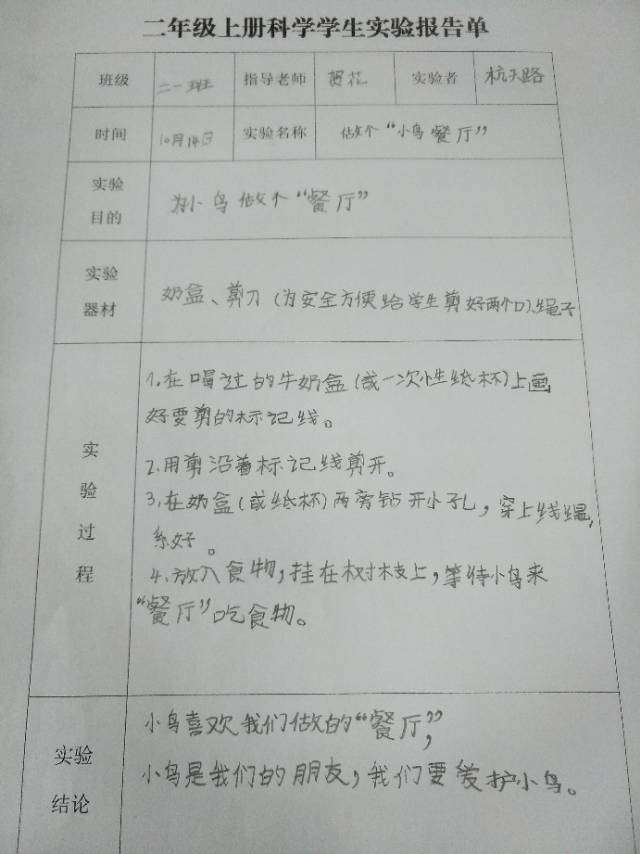 二年级上册科学学生实验报告单
班级 二一班 指导老师 贺花 实验者 杭天路
时间 10月14日 实验名称 做个“小鸟餐厅”
实验
目的
为小鸟做个“餐厅”
实验
器材
奶盒、剪刀(为安全方便给学生剪好两个口)、绳子
实验过程
1.在喝过的牛奶盒(或一次性纸杯)上画
好要剪的标记线。
2.用剪沿着标记线剪开。
3.在奶盒(或纸杯)两旁钻开小孔,穿上线绳,
系好。
4.放入食物,挂在树枝上,等待小鸟来
“餐厅”吃食物。
实验
结论
小鸟喜欢我们做的“餐厅”,
小鸟是我们的朋友,我们要爱护小鸟。